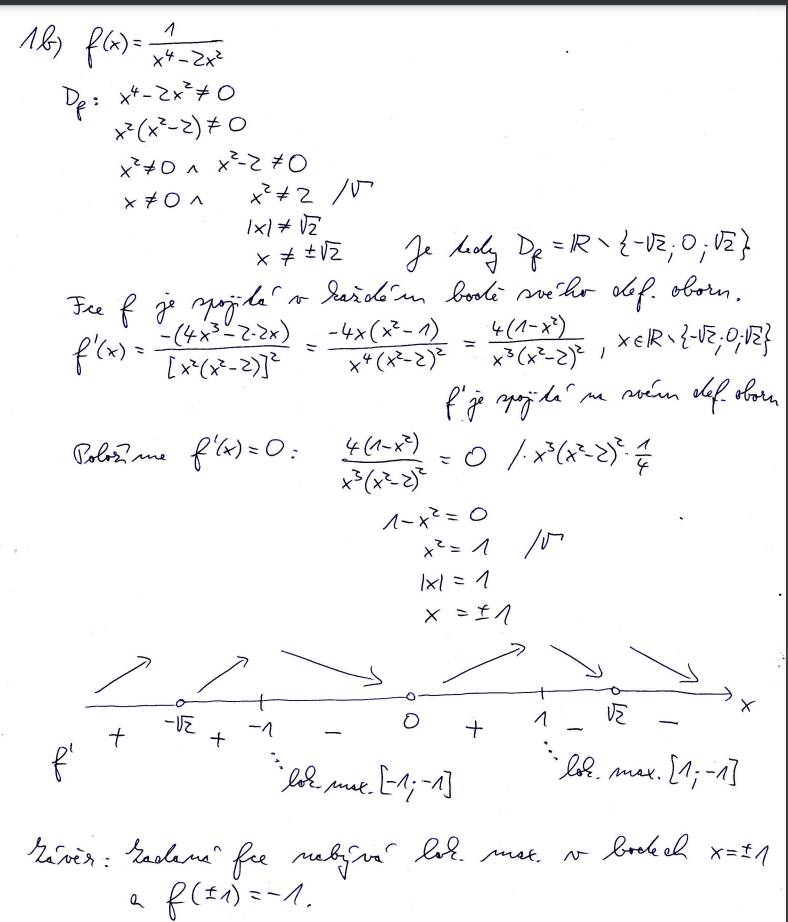 1b) f(x) = 1/(x⁴ − 2x²)
D_f: x⁴ − 2x² ≠ 0
x²(x² − 2) ≠ 0
x² ≠ 0 ∧ x² − 2 ≠ 0
x ≠ 0 ∧ x² ≠ 2 /√
|x| ≠ √2
x ≠ ±√2 Je tedy D_f = ℝ∖{−√2; 0; √2}
Fce f je spojitá v každém bodě svého def. oboru.
f'(x) = −(4x³ − 2·2x)/[x²(x² − 2)]² = −4x(x² − 1)/(x⁴(x² − 2)²) = 4(1 − x²)/(x³(x² − 2)²), x∈ℝ∖{−√2; 0; √2}
f' je spojitá na svém def. oboru
Položme f'(x) = 0: 4(1 − x²)/(x³(x² − 2)²) = 0 /· x³(x² − 2)² · 1/4
1 − x² = 0
x² = 1 /√
|x| = 1
x = ±1
−√2 −1 0 1 √2 x
f' + + − + − −
lok. max. [−1; −1] lok. max. [1; −1]
Závěr: Zadaná fce nabývá lok. max. v bodech x = ±1
a f(±1) = −1.